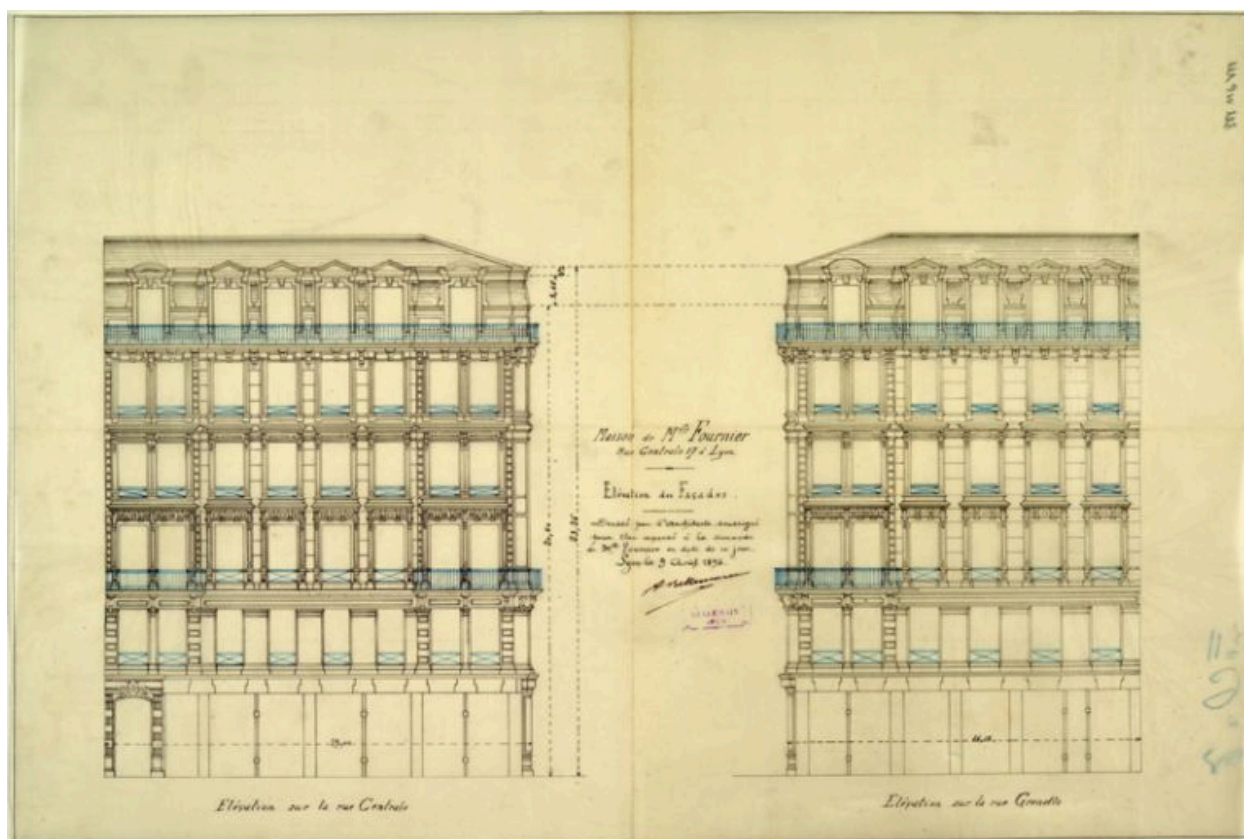 Maison de M^lle Fournier
Rue Centrale 19 à Lyon
Elévation des Façades.
Dressé par l'architecte soussigné
pour être annexé à la demande
de M^lle Fournier en date de ce jour
Lyon le 9
Elévation sur la rue Centrale
Elévation sur la rue Grenette